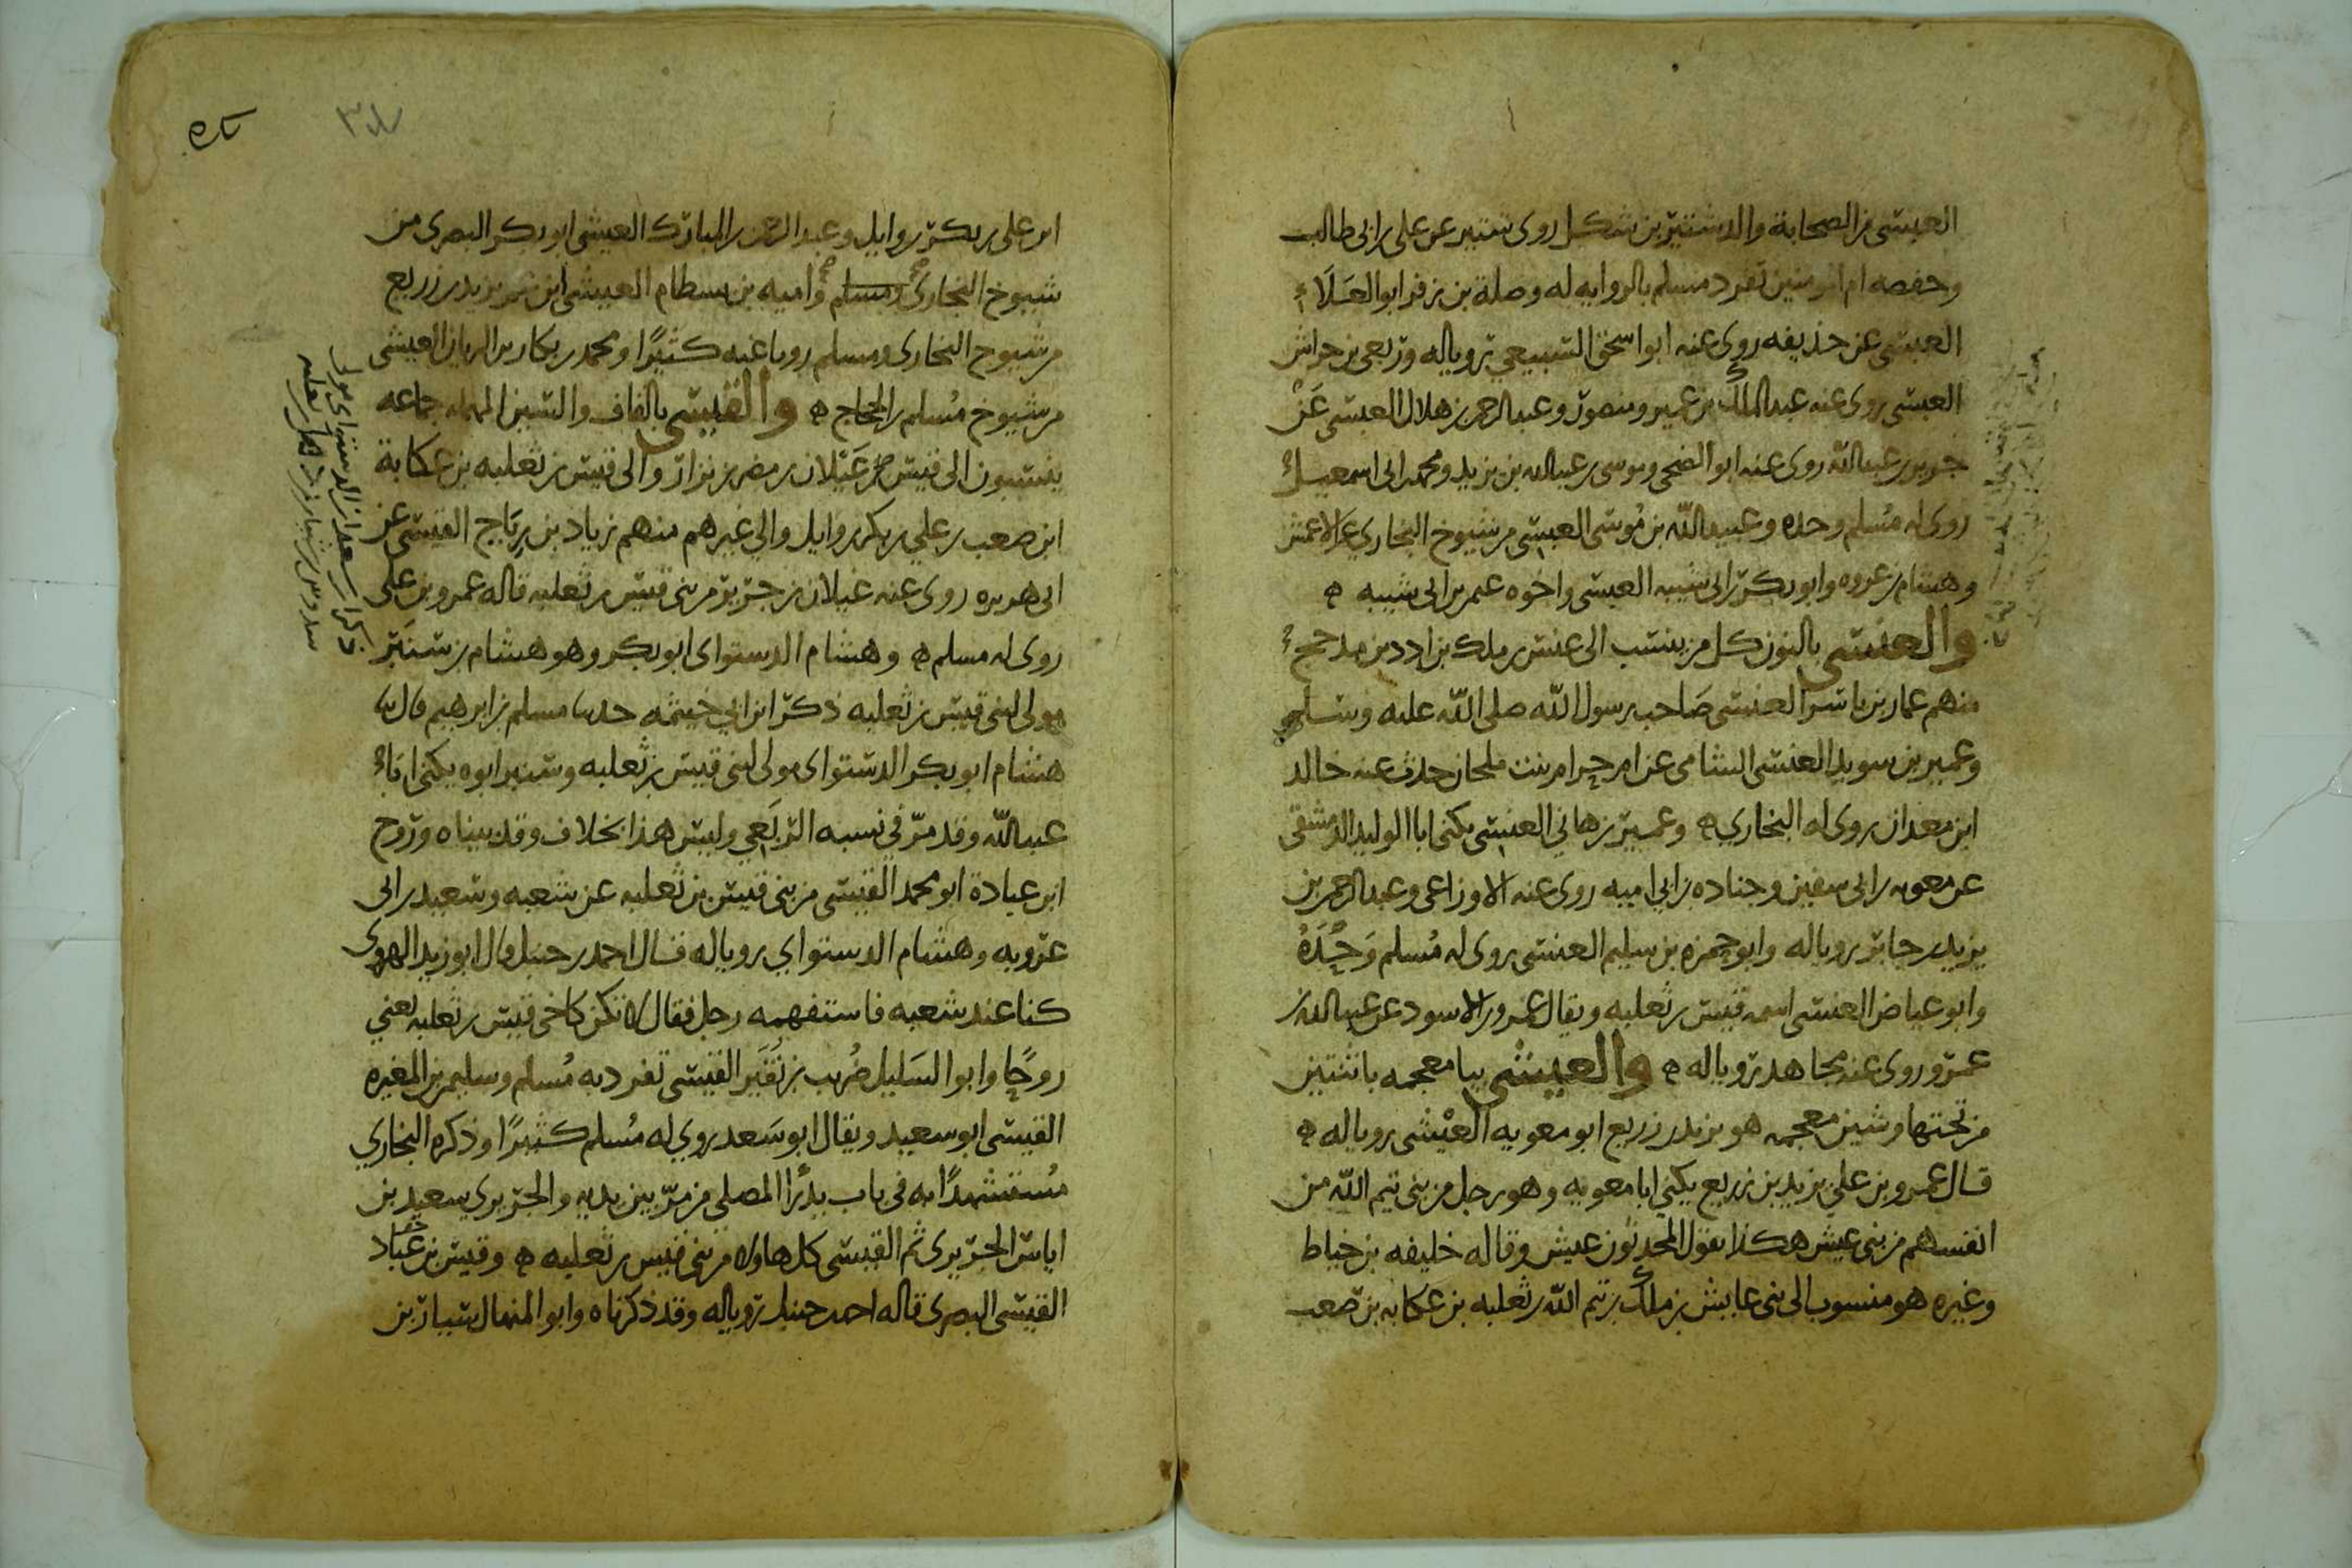 العبسي من الصحابة والد شتير بن شكل روى شتير عن علي بن ابي طالب
وحفصه ام المومنين تفرد مسلم بالروايه له وصلة بن زفر ابو العلاء
العبسي عن حذيفه روى عنه ابو اسحق السبيعي رويا له وربعي بن حراش
العبسي روى عنه عبد الملك بن عمير ومنصور وعبد الرحمن بن هلال العبسي عن
جرير بن عبد الله روى عنه ابو الضحى وموسى بن عبد الله بن يزيد ومحمد بن ابي اسمعيل
روى له مسلم وحده وعبيد الله بن موسى العبسي من شيوخ البخاري عن الاعمش
وهشام بن عروه وابو بكر بن ابي شيبه العبسي واخوه عثمن بن ابي شيبه ه
والعنسي بالنون كل من ينتسب الى عنس بن ملك بن ادد بن مذحج
منهم عمار بن ياسر العنسي صاحب رسول الله صلى الله عليه وسلم
وعمير بن سويد العنسي الشامي عن ام حرام بنت ملحان حدث عنه خالد
ابن معدان روى له البخاري ه وعمير بن هاني العنسي يكنى ابا الوليد الدمشقي
عن معويه بن ابي سفين وجناده بن ابي اميه روى عنه الاوزاعي وعبد الرحمن بن
يزيد بن جابر رويا له وابو حمزه بن سليم العنسي روى له مسلم وحده
وابو عياض العنسي اسمه قيس بن ثعلبه ويقال عمرو بن الاسود عن عبد الله بن
عمرو روى عنه مجاهد رويا له ه والعيشي بيا معجمه باثنتين
من تحتها وشين معجمه هو يزيد بن زريع ابو معويه العيشي رويا له ه
قال عمرو بن علي يزيد بن زريع يكنى ابا معويه وهو رجل من بني تيم الله من
انفسهم من بني عيش هكذا يقول المحدثون عيش وقاله خليفه بن خياط
وغيره هو منسوب الى بني عايش بن ملك بن تيم الله بن ثعلبه بن عكابه بن صعب
ابن علي بن بكر بن وايل وعبد الرحمن بن المبارك العيشي ابو بكر البصري من
شيوخ البخاري ومسلم واميه بن بسطام العيشي ابن عم يزيد بن زريع
من شيوخ البخاري ومسلم رويا عنه كثيرا ومحمد بن بكار بن الريان العيشي
من شيوخ مسلم بن الحجاج ه والقيسي بالقاف والسين المهمله جماعه
ينتسبون الى قيس عيلان بن مضر بن نزار والى قيس بن ثعلبه بن عكابة
ابن صعب بن علي بن بكر بن وايل والى غيرهم منهم زياد بن رياح القيسي عن
ابي هريره روى عنه غيلان بن جرير من بني قيس بن ثعلبه قاله عمرو بن علي
روى له مسلم ه وهشام الدستواي ابو بكر وهو هشام بن سنبر
مولى لبني قيس بن ثعلبه ذكر ابن ابي خيثمه حدثنا مسلم بن ابرهيم قال ثنا
هشام ابو بكر الدستواي مولى لبني قيس بن ثعلبه وسنبر ابوه يكنى ابا
عبد الله وقد مر في نسبه الربعي وليس هذا بخلاف وقد بيناه وروح
ابن عبادة ابو محمد القيسي من بني قيس بن ثعلبه عن شعبه وسعيد بن ابي
عروبه وهشام الدستواي رويا له قال احمد بن حنبل قال ابو زيد الهروي
كنا عند شعبه فاستفهمه رجل فقال لا تكن كاخي قيس بن ثعلبه يعني
روحا وابو السليل ضريب بن نقير القيسي تفرد به مسلم وسليمن بن المغيره
القيسي ابو سعيد ويقال ابو سعد روى له مسلم كثيرا وذكره البخاري
مستشهدا به في باب يدرأ المصلي من مر بين يديه والجريري سعيد بن
اياس الجريري ثم القيسي كل هاولا من بني قيس بن ثعلبه ه وقيس بن عباد
القيسي البصري قاله احمد بن حنبل رويا له وقد ذكرناه وابو المنهال سيار بن